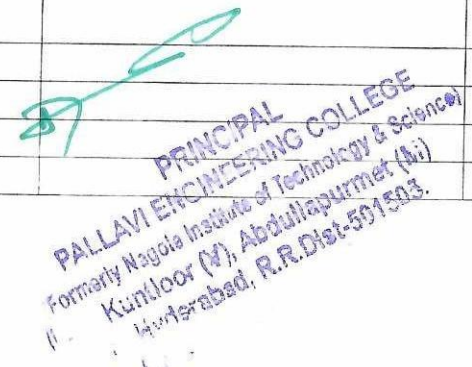 PRINCIPAL
PALLAVI ENGINEERING COLLEGE
Formerly Nagole Institute of Technology & Science)
Kuntloor (V), Abdullapurmet (M)
Hyderabad, R.R.Dist-501503.